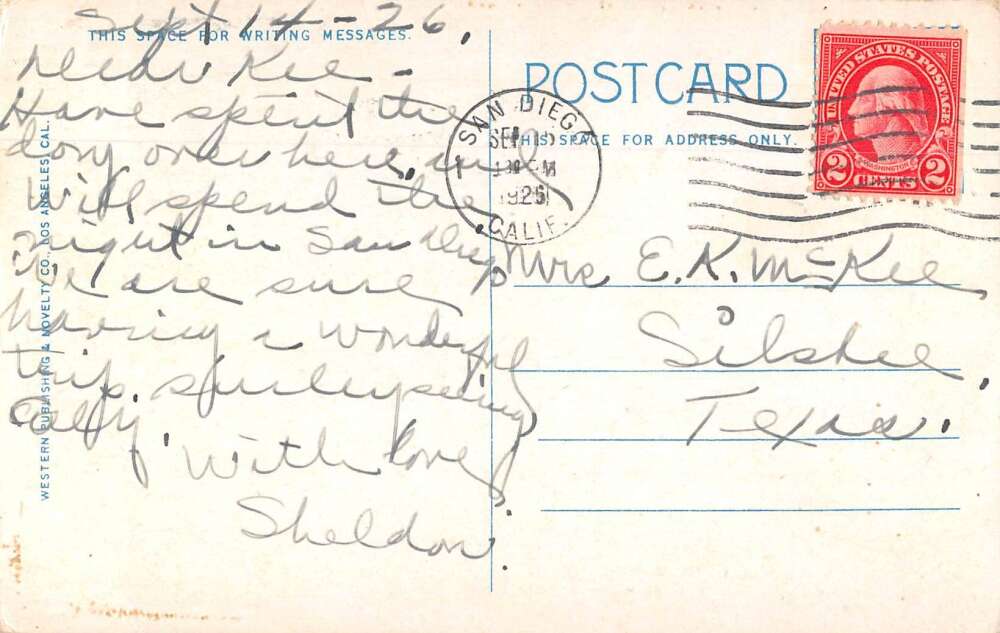 Sept 14 - 26.
THIS SPACE FOR WRITING MESSAGES.
Dear Kee -
Have spent the
day over here, and
will spend the
night in San Diego
We are sure
having a wonderful
trip, surely seeing
Cal.
With love
Sheldon.
WESTERN PUBLISHING & NOVELTY CO., LOS ANGELES, CAL.
POST CARD
THIS SPACE FOR ADDRESS ONLY.
SAN DIEGO
SEP 15
PM
1926
CALIF.
1
UNITED STATES POSTAGE
WASHINGTON
2 CENTS 2
Mrs E. K. McKee
Silsbee,
Texas.